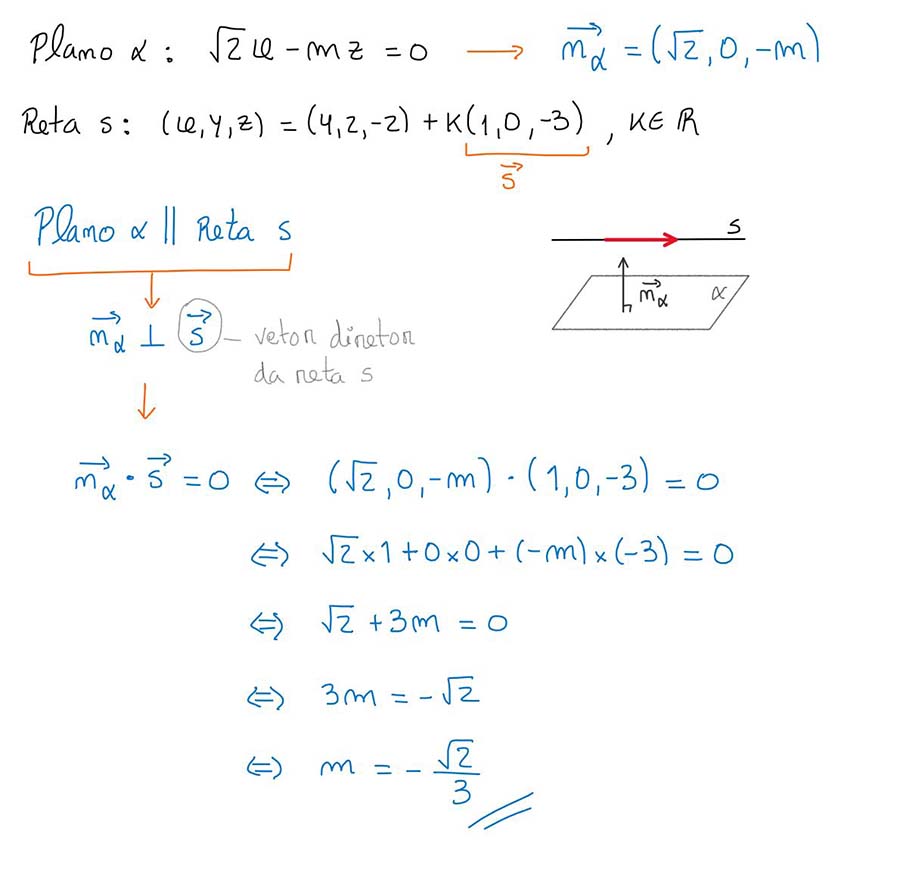 Plano α : √2x - mz = 0 → n⃗α = (√2, 0, -m)
Reta s : (x, y, z) = (4, 2, -2) + K(1, 0, -3) , K ∈ ℝ
s⃗
Plano α ∥ Reta s
s
n⃗α α
n⃗α ⊥ s⃗ – vetor diretor
da reta s
n⃗α · s⃗ = 0 ⇔ (√2, 0, -m) · (1, 0, -3) = 0
⇔ √2 × 1 + 0 × 0 + (-m) × (-3) = 0
⇔ √2 + 3m = 0
⇔ 3m = -√2
⇔ m = - √2/3